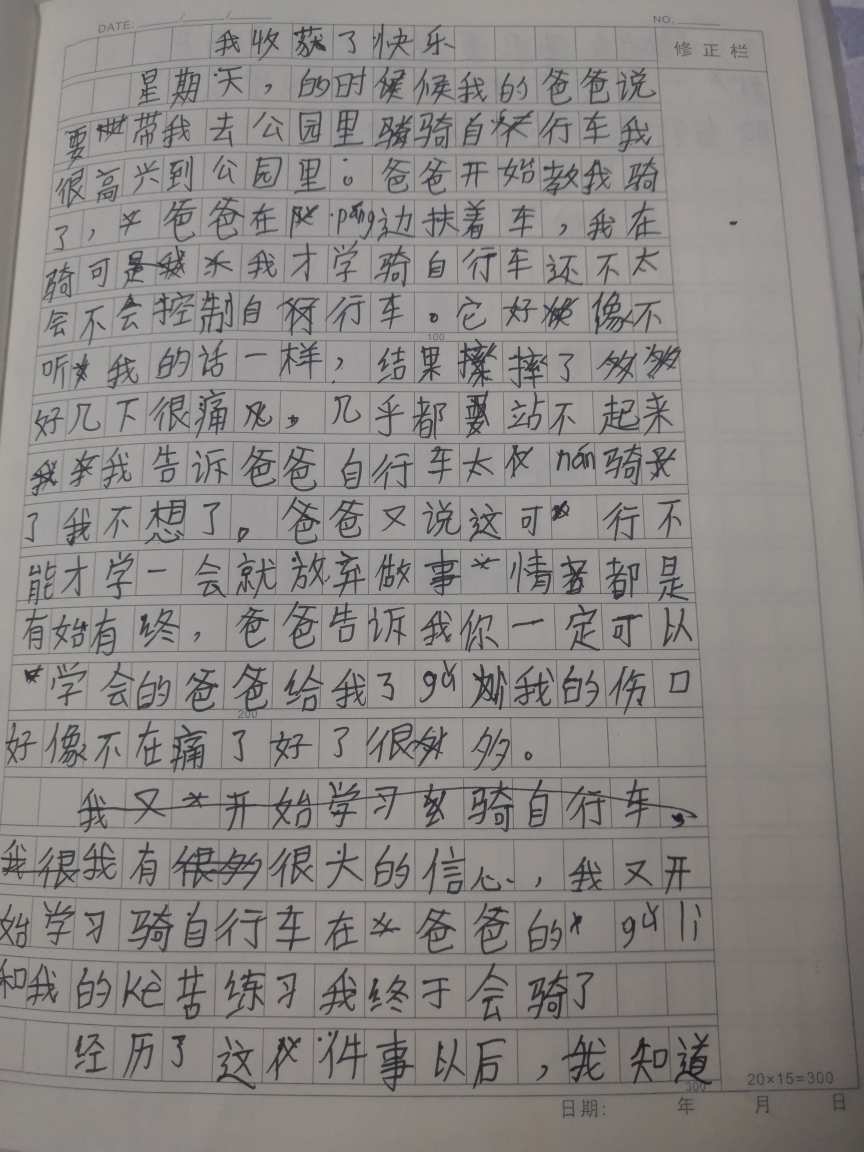 DATE: / / NO.
我收获了快乐
修正栏
星期天，的时候候我的爸爸说
要带我去公园里骑骑自行车我
很高兴到公园里。爸爸开始教我骑
了，爸爸在páng边扶着车，我在
骑可是我才学骑自行车还不太
会不会控制自行行车。它好像不
听我的话一样，结果摔了够
100
好几下很痛。几乎都要站不起来
我告诉爸爸自行车太nán骑
了我不想了。爸爸又说这可行不
能才学一会就放弃做事情都是
有始有终，爸爸告诉我你一定可以
学会的爸爸给我了gǔ我的伤口
200
好像不在痛了好了很多。
我又开始学习骑自行车。
我很我有很多很大的信心，我又开
始学习骑自行车在爸爸的gǔ lì
和我的kè苦练习我终于会骑了
经历了这件事以后，我知道
300
20×15=300
日期: 年 月 日